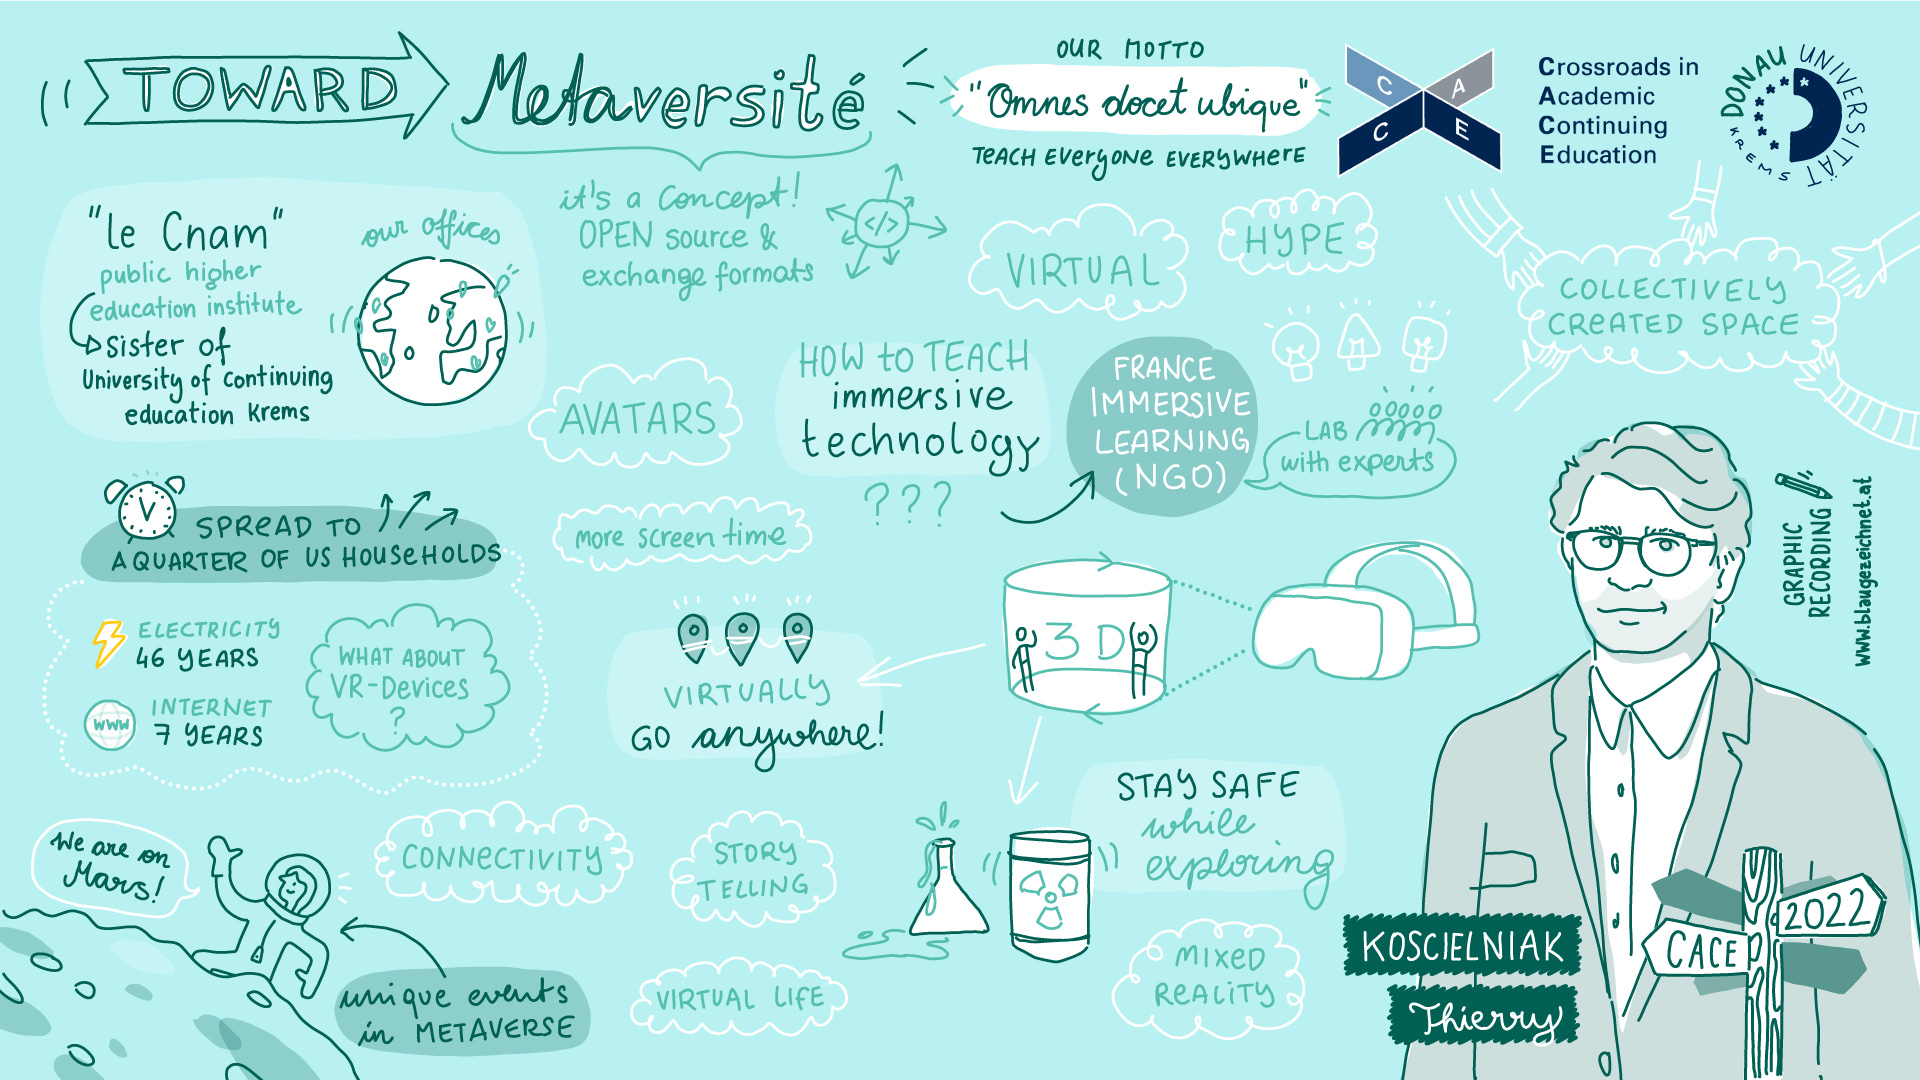 TOWARD
Metaversité
OUR MOTTO
"Omnes docet ubique"
TEACH EVERYONE EVERYWHERE
C A
C E
Crossroads in
Academic
Continuing
Education
DONAU UNIVERSITÄT
KREMS
"le Cnam"
public higher
education institute
Sister of
University of continuing
education Krems
our offices
it's a concept!
OPEN source &
exchange formats
</>
VIRTUAL
HYPE
COLLECTIVELY
CREATED SPACE
AVATARS
HOW to TEACH
immersive
technology
???
FRANCE
IMMERSIVE
LEARNING
(NGO)
LAB
with experts
SPREAD TO
A QUARTER OF US HOUSEHOLDS
ELECTRICITY
46 YEARS
WWW
INTERNET
7 YEARS
WHAT ABOUT
VR-Devices
?
more screen time
VIRTUALLY
GO anywhere!
3D
STAY SAFE
while
exploring
GRAPHIC
RECORDING
www.blaugezeichnet.at
We are on
Mars!
CONNECTIVITY
STORY
TELLING
unique events
in METAVERSE
VIRTUAL LIFE
MIXED
REALITY
KOSCIELNIAK
Thierry
2022
CACEP